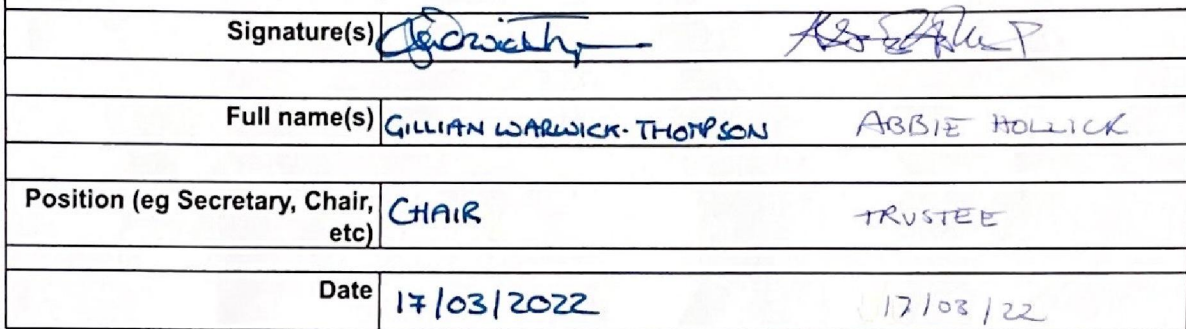 Signature(s)
Full name(s) GILLIAN WARWICK-THOMPSON ABBIE HOLLICK
Position (eg Secretary, Chair, CHAIR TRUSTEE
etc)
Date 17/03/2022 17/03/22